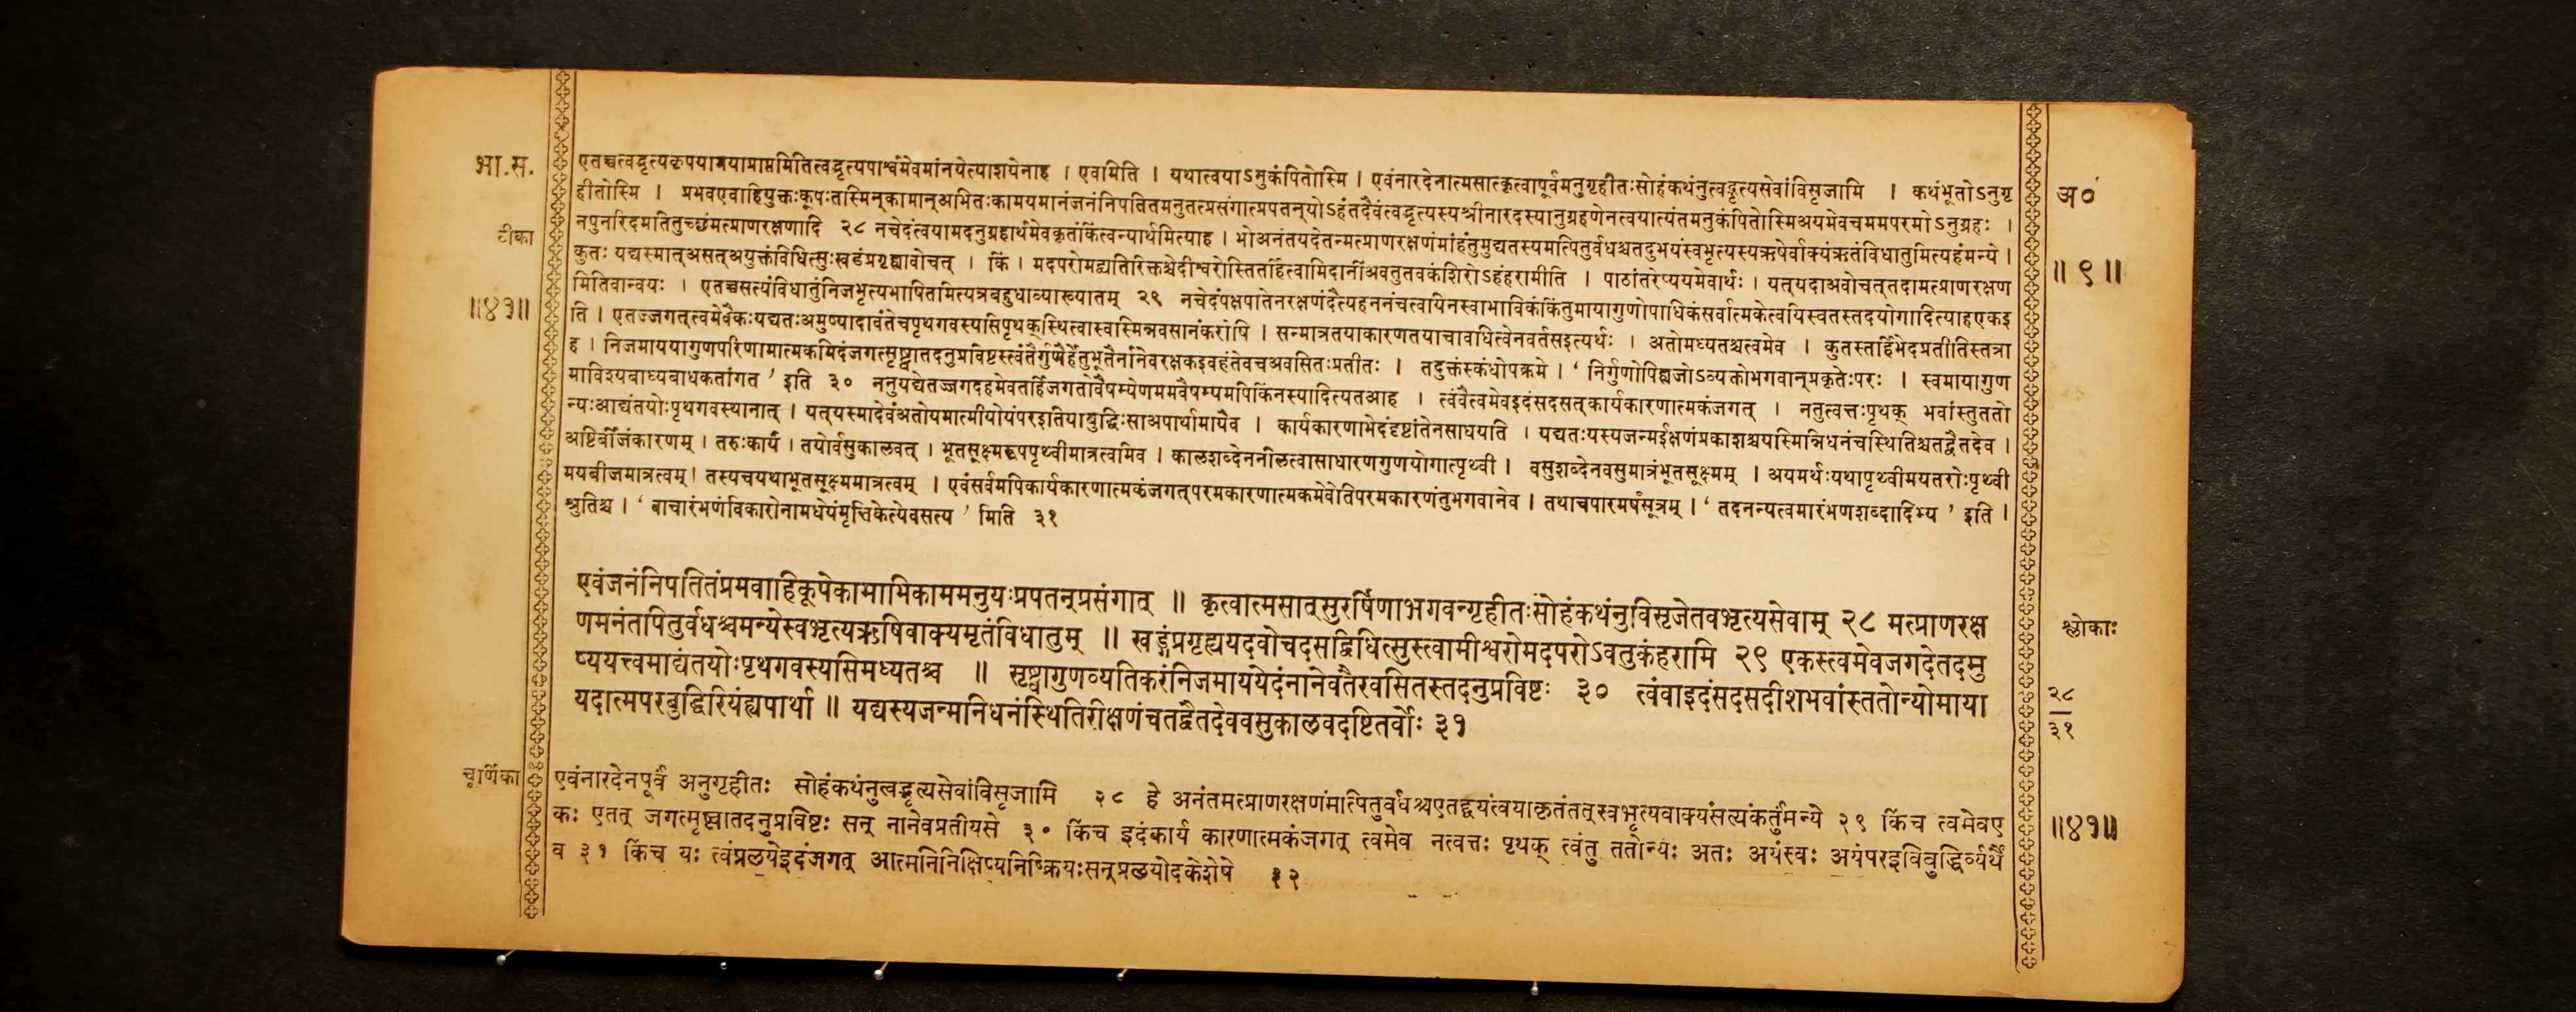 भा.स.
टीका
॥४१॥
एतच्चत्वद्भृत्यकृपयामयाप्राप्तमितित्वद्भृत्यपार्श्वमेवमांनयेत्याशयेनाह । एवमिति । यथात्वयाऽनुकंपितोस्मि । एवंनारदेनात्मसात्कृत्वापूर्वमनुगृहीतःसोहंकथंनुत्वद्भृत्यसेवांविसृजामि । कथंभूतोऽनुगृ
हीतोस्मि । प्रभवएवाहियुक्तःकूपःतस्मिन्कामान्अभितःकामयमानंजनंनिपतितमनुतत्प्रसंगात्प्रपतन्योऽहंतदैवंत्वद्भृत्यस्यश्रीनारदस्यानुग्रहणेनत्वयात्यंतमनुकंपितोस्मिअयमेवचममपरमोऽनुग्रहः ।
नपुनरिदमतितुच्छंमत्प्राणरक्षणादि २८ नचेदंत्वयामदनुग्रहार्थमेवकृतंकिंत्वन्यार्थमित्याह । भोअनंतयदेतन्मत्प्राणरक्षणंमांहंतुमुद्यतस्यमत्पितुर्वधश्चतदुभयंस्वभृत्यस्यऋषेर्वाक्यंऋतंविधातुमित्यहंमन्ये ।
कुतः यद्यस्मात्असत्अयुक्तंविधित्सुःखड्गंप्रगृह्यावोचत् । किं । मदपरोमद्व्यतिरिक्तश्चेदीश्वरोस्तितर्हित्वामिदानींअवतुतवकंशिरोऽहंहरामीति । पाठांतरेप्ययमेवार्थः । यत्यदाअवोचत्तदामत्प्राणरक्षण
मितिवान्वयः । एतच्चसत्यंविधातुंनिजभृत्यभाषितमित्यत्रबहुधाव्याख्यातम् २९ नचेदंपक्षपातेनरक्षणंदैत्यहननंचत्वयिनस्वाभाविकंकिंतुमायागुणोपाधिकंसर्वात्मकेत्वयिस्वतस्तदयोगादित्याहएकइ
ति । एतज्जगत्त्वमेवैकःयद्यतःअमुष्यादावंतेचपृथगवस्यसिपृथक्स्थित्वास्वास्मिन्नवसानंकरोषि । सन्मात्रतयाकारणतयाचावाधित्वेनवर्तसइत्यर्थः । अतोमध्यतश्चत्वमेव । कुतस्तर्हिभेदप्रतीतिस्तत्रा
ह । निजमाययागुणपरिणामात्मकमिदंजगत्सृष्ट्वातदनुप्रविष्टस्त्वंतैर्गुणैर्हेतुभूतैर्नानेवरक्षकइवहंतेवचअवसितःप्रतीतः । तदुक्तंस्कंधोपक्रमे । ‘ निर्गुणोपिह्यजोऽव्यक्तोभगवान्प्रकृतेःपरः । स्वमायागुण
माविश्यबाध्यबाधकतांगत ’ इति ३० ननुयद्येतज्जगदहमेवतर्हिजगतोवैषम्येणममवैषम्यमपिकिंनस्यादित्यतआह । त्वंवैत्वमेवइदंसदसत्कार्यकारणात्मकंजगत् । नतुत्वत्तःपृथक् भवांस्तुततो
न्यःआद्यंतयोःपृथगवस्थानात् । यत्यस्मादेवंअतोयमात्मीयोयंपरइतियाबुद्धिःसाअपार्थामायैव । कार्यकारणाभेदंदृष्टांतेनसाधयति । यद्यतःयस्यजन्मईक्षणंप्रकाशश्चयस्मिन्निधनंचस्थितिश्चतद्वैतदेव ।
अष्टिर्बीजंकारणम् । तरुःकार्यं । तयोर्वसुकालवत् । भूतसूक्ष्मरूपपृथ्वीमात्रत्वमिव । कालशब्देननीलत्वासाधारणगुणयोगात्पृथ्वी । वसुशब्देनवसुमात्रंभूतसूक्ष्मम् । अयमर्थःयथापृथ्वीमयतरोःपृथ्वी
मयबीजमात्रत्वम् । तस्यचयथाभूतसूक्ष्ममात्रत्वम् । एवंसर्वमपिकार्यकारणात्मकंजगत्परमकारणात्मकमेवेतिपरमकारणंतुभगवानेव । तथाचपारमर्षंसूत्रम् । ‘ तदनन्यत्वमारंभणशब्दादिभ्य ’ इति ।
श्रुतिश्च । ‘ वाचारंभणंविकारोनामधेयंमृत्तिकेत्येवसत्य ’ मिति ३१
अ०
॥ ९ ॥
एवंजनंनिपतितंप्रभवाहिकूपेकामाभिकाममनुयःप्रपतन्प्रसंगात् ॥ कृत्वात्मसात्सुरर्षिणाभगवन्गृहीतःसोहंकथंनुविसृजेतवभृत्यसेवाम् २८ मत्प्राणरक्ष
णमनंतपितुर्वधश्चमन्येस्वभृत्यऋषिवाक्यमृतंविधातुम् ॥ खड्गंप्रगृह्ययदवोचदसद्विधित्सुस्त्वामीश्वरोमदपरोऽवतुकंहरामि २९ एकस्त्वमेवजगदेतदमु
ष्ययत्त्वमाद्यंतयोःपृथगवस्यसिमध्यतश्च ॥ सृष्ट्वागुणव्यतिकरंनिजमाययेदंनानेवतैरवसितस्तदनुप्रविष्टः ३० त्वंवाइदंसदसदीशभवांस्ततोन्योमाया
यदात्मपरबुद्धिरियंह्यपार्था ॥ यद्यस्यजन्मनिधनंस्थितिरीक्षणंचतद्वैतदेववसुकालवदष्टितर्वोः ३१
श्लोकाः
२८
३१
चूर्णिका
एवंनारदेनपूर्वं अनुगृहीतः सोहंकथंनुत्वद्भृत्यसेवांविसृजामि २८ हे अनंतमत्प्राणरक्षणंमत्पितुर्वधश्चएतद्द्वयंत्वयाकृतंतत्स्वभृत्यवाक्यंसत्यंकर्तुंमन्ये २९ किंच त्वमेवए
कः एतत् जगत्सृष्ट्वातदनुप्रविष्टः सन् नानेवप्रतीयसे ३० किंच इदंकार्य कारणात्मकंजगत् त्वमेव नत्वत्तः पृथक् त्वंतु ततोन्यः अतः अयंस्वः अयंपरइतिबुद्धिर्व्यर्थै
व ३१ किंच यः त्वंप्रलयेइदंजगत् आत्मनिनिक्षिप्यनिष्क्रियःसन्प्रलयोदकेशेषे ३२
॥४१॥